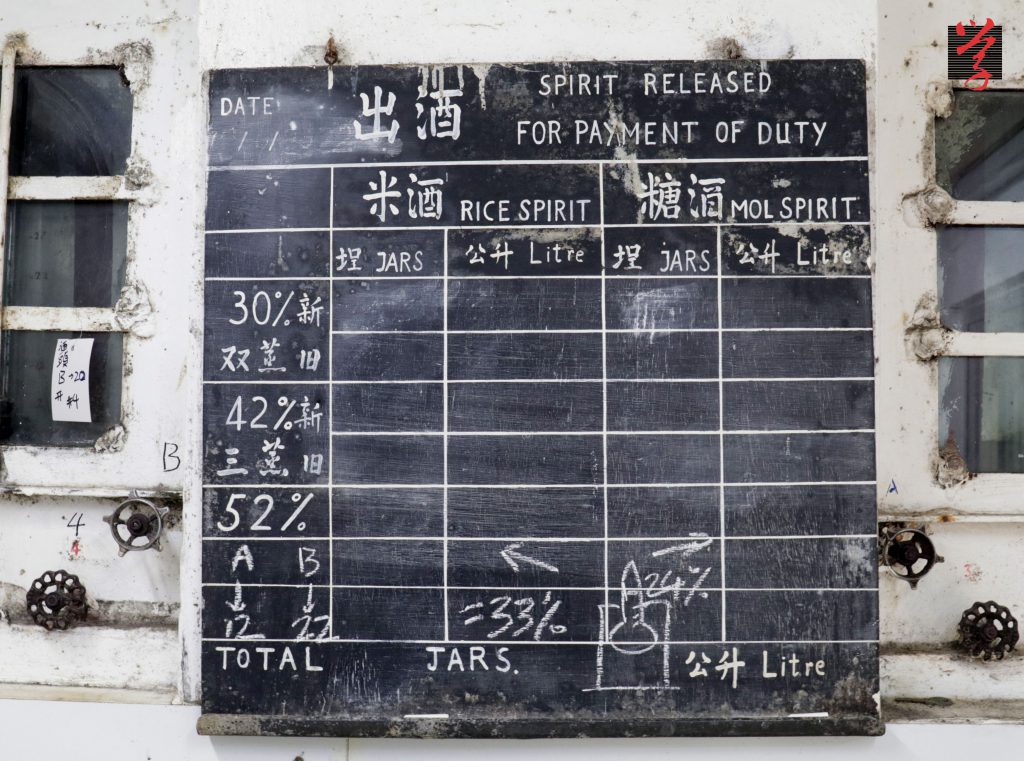 学
DATE
/ / /
出酒
SPIRIT RELEASED
FOR PAYMENT OF DUTY
米酒 RICE SPIRIT
糖酒 MOL SPIRIT
埕 JARS
公升 Litre
埕 JARS
公升 Litre
30% 新
双蒸 旧
42% 新
三蒸 旧
52%
A B
↓ ↓
12 22
=33%
A 24%
TOTAL
JARS.
公升 Litre
酒
頭
B→22
#4
B
4
4
A
3